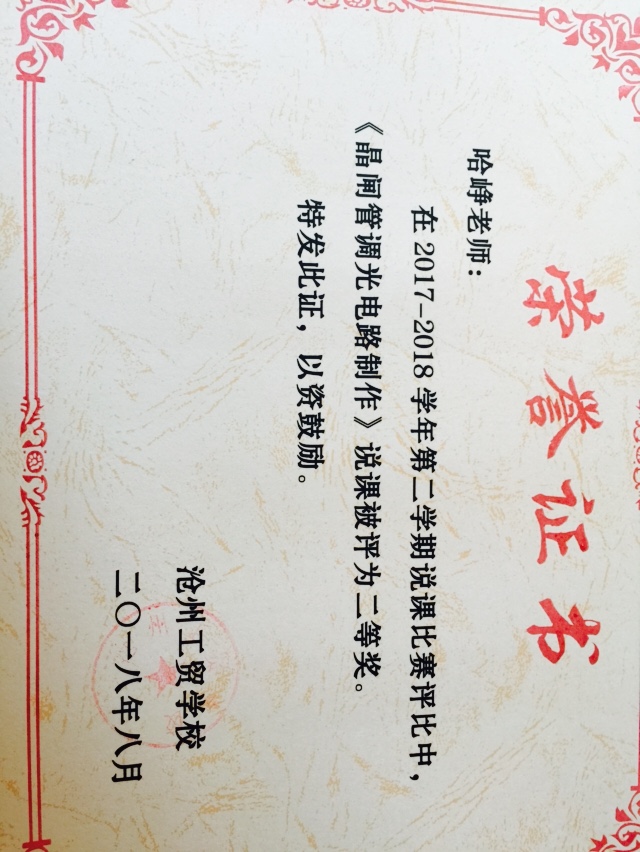 荣誉证书
哈峥老师：
在2017-2018学年第二学期说课比赛评比中，
《晶闸管调光电路制作》说课被评为二等奖。
特发此证，以资鼓励。
沧州工贸学校
二〇一八年八月